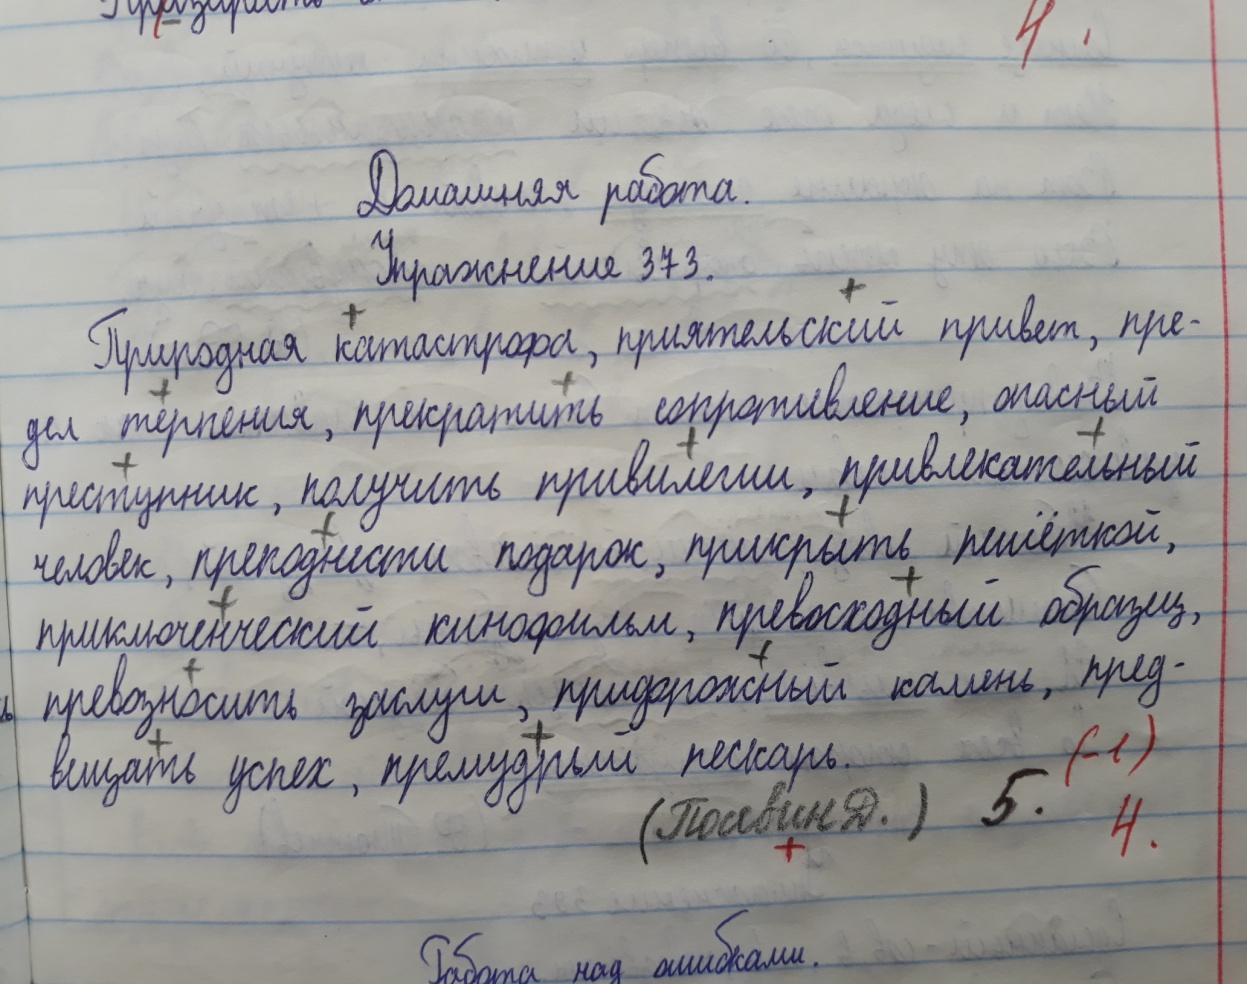 4.
Домашняя работа.
Упражнение 373.
Природная катастрофа, приятельский привет, пре-
дел терпения, прекратить сопротивление, опасный
преступник, получить привилегии, привлекательный
человек, преподнести подарок, прикрыть решёткой,
приключенческий кинофильм, превосходный образец,
превозносить заслуги, придорожный камень, пред-
вещать успех, премудрый пескарь. (-1)
( Д.) 5. 4.
Работа над ошибками.